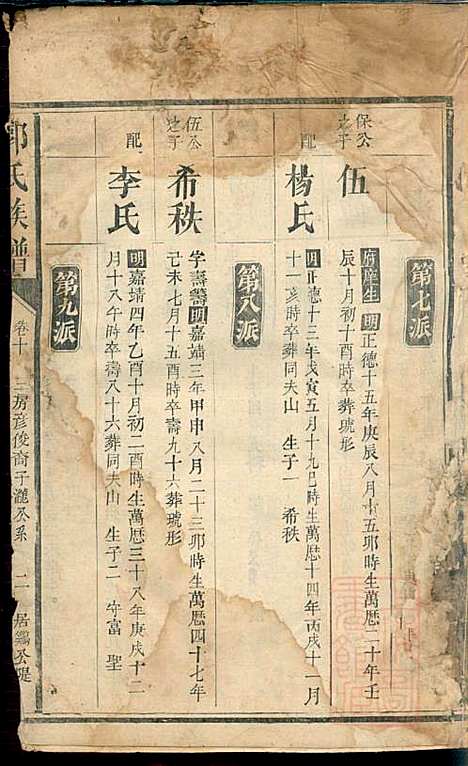 第七派
保公之子
伍
府庠生 明正德十五年庚辰八月十五卯時生萬曆二十年壬
辰十月初十酉時卒葬琥形
配
楊氏
明正德十三年戊寅五月十九巳時生萬曆十四年丙戌十一月
十一亥時卒葬同夫山 生子一 希秩
第八派
伍公之子
希秩
字壽籌明嘉靖三年甲申八月二十三卯時生萬曆四十七年
己未七月十五酉時卒壽九十六葬琥形
配
李氏
明嘉靖四年乙酉十月初二酉時生萬曆三十八年庚戌十二
月十八午時卒壽八十六葬同夫山 生子二 守富 聖
第九派
氏族譜
卷十 三房彥俊裔子瀧公系 二 居